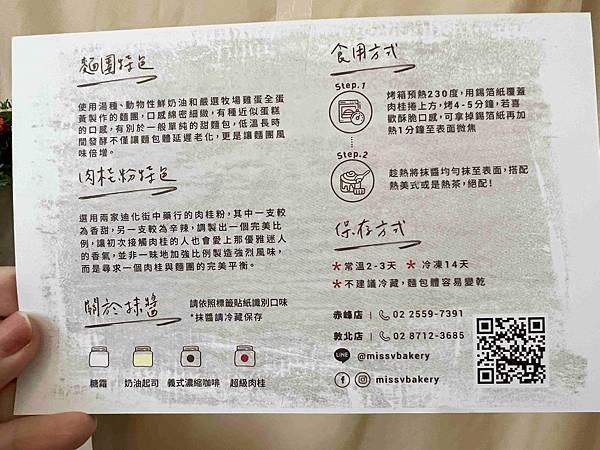 麵團特色
使用湯種、動物性鮮奶油和嚴選牧場雞蛋全蛋
黃製作的麵團，口感綿密細緻，有種近似蛋糕
的口感，有別於一般單純的甜麵包，低溫長時
間發酵不僅讓麵包體延遲老化，更是讓麵團風
味倍增。
肉桂粉特色
選用兩家迪化街中藥行的肉桂粉，其中一支較
為香甜，另一支較為辛辣，調製出一個完美比
例，讓初次接觸肉桂的人也會愛上那優雅迷人
的香氣，並非一昧地加強比例製造強烈風味，
而是尋求一個肉桂與麵團的完美平衡。
關於抹醬
請依照標籤貼紙識別口味
*抹醬請冷藏保存
糖霜
奶油起司
義式濃縮咖啡
超級肉桂
食用方式
Step.1
烤箱預熱230度，用錫箔紙覆蓋
肉桂捲上方，烤4-5分鐘，若喜
歡酥脆口感，可拿掉錫箔紙再加
熱1分鐘至表面微焦
Step.2
趁熱將抹醬均勻抹至表面，搭配
熱美式或是熱茶，絕配！
保存方式
*常溫2-3天 *冷凍14天
*不建議冷藏，麵包體容易變乾
赤峰店 | 02 2559-7391
敦北店 | 02 8712-3685
LINE @missvbakery
missvbakery